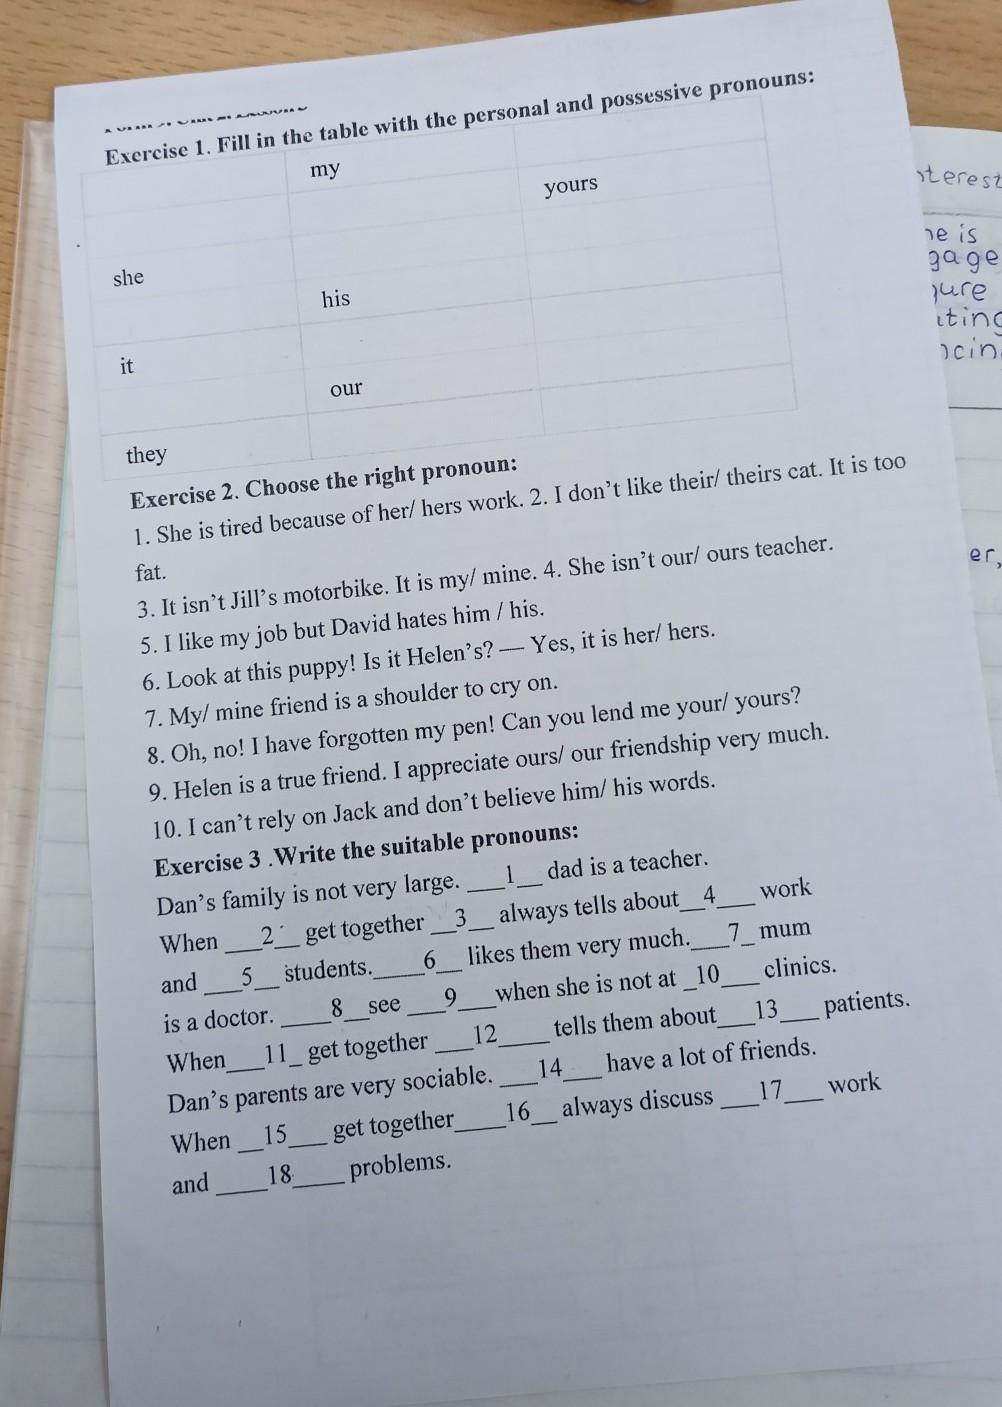 Exercise 1. Fill in the table with the personal and possessive pronouns:
my
yours
she
his
it
our
they
Exercise 2. Choose the right pronoun:
1. She is tired because of her/ hers work. 2. I don't like their/ theirs cat. It is too
fat.
3. It isn't Jill's motorbike. It is my/ mine. 4. She isn't our/ ours teacher.
5. I like my job but David hates him / his.
6. Look at this puppy! Is it Helen's? — Yes, it is her/ hers.
7. My/ mine friend is a shoulder to cry on.
8. Oh, no! I have forgotten my pen! Can you lend me your/ yours?
9. Helen is a true friend. I appreciate ours/ our friendship very much.
10. I can't rely on Jack and don't believe him/ his words.
Exercise 3 .Write the suitable pronouns:
Dan's family is not very large. ___1__ dad is a teacher.
When ___2__ get together __3__ always tells about__4___ work
and ___5__ students.____6__ likes them very much.___7_ mum
is a doctor. ____8__see ___9___when she is not at _10___ clinics.
When___11_ get together ___12____ tells them about___13___ patients.
Dan's parents are very sociable. ___14___ have a lot of friends.
When __15___ get together____16__ always discuss ___17___ work
and ____18____ problems.
he is
er,